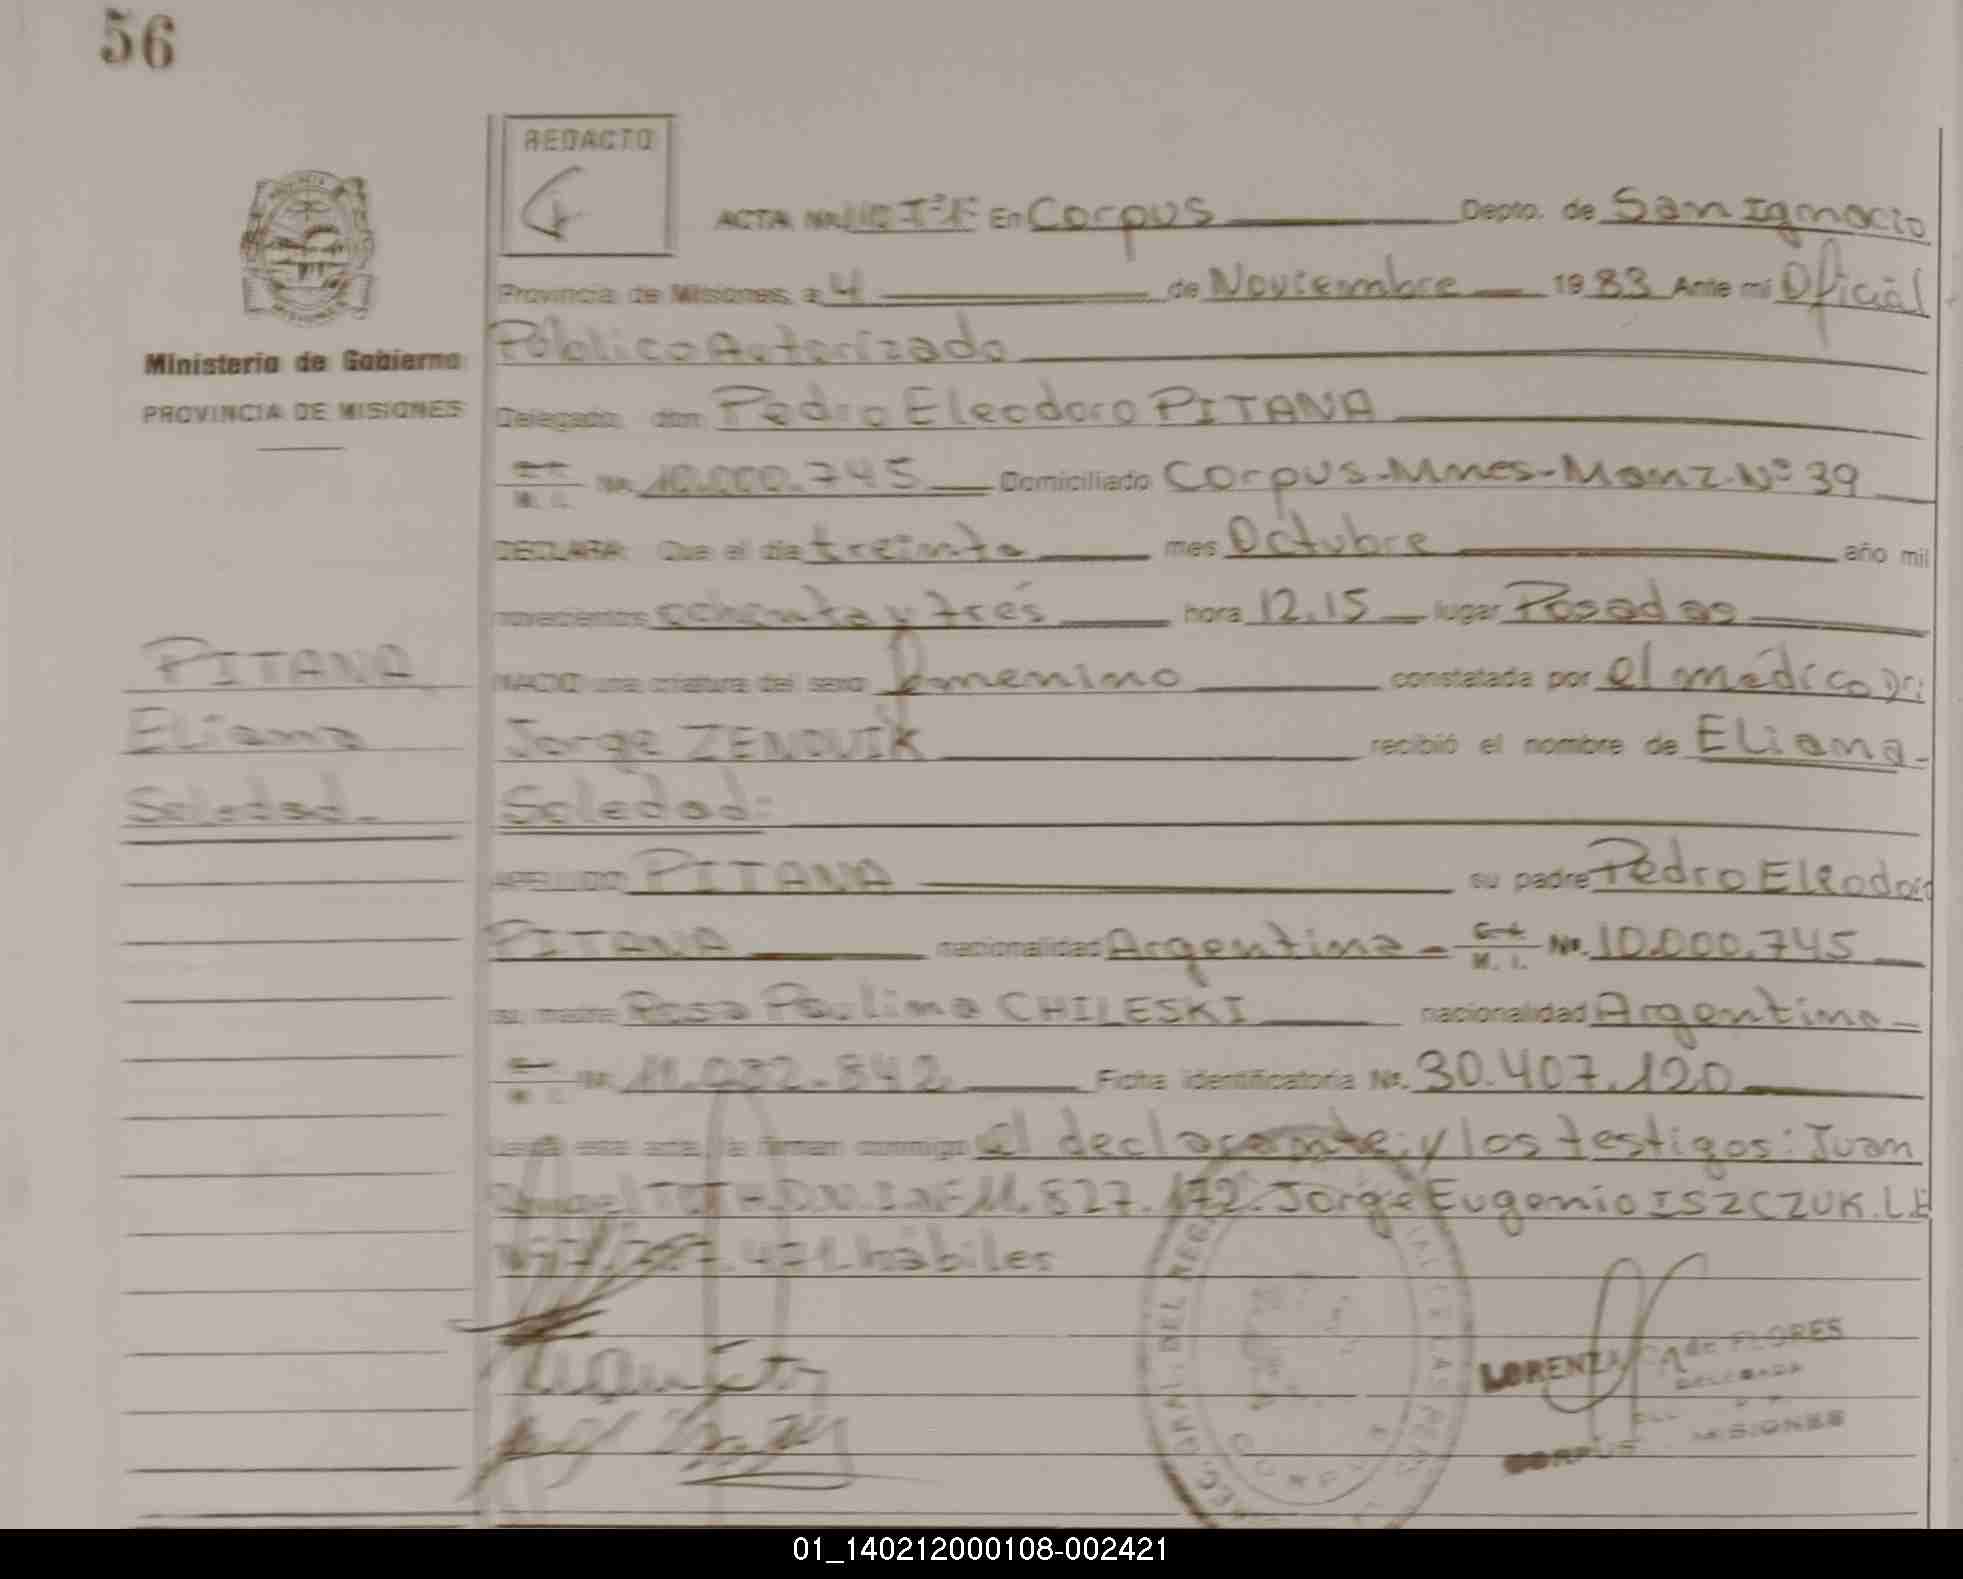 56
REDACTO
ACTA No. En Corpus Depto. de San Ignacio
Provincia de Misiones, a 4 de Noviembre 1983 Ante mi Oficial
Público Autorizado
Ministerio de Gobierno
PROVINCIA DE MISIONES
Delegado, don Pedro Eleodoro PITANA
M. I. No. 10.000.745 Domiciliado Corpus-Mnes-Manz.Nº 39
DECLARA: Que el día treinta mes Octubre año mil
novecientos ochenta y trés hora 12.15 lugar Posadas
NACIO una criatura del sexo femenino constatada por el médico Dr:
Jorge ZENOVIK recibió el nombre de Eliana-
Soledad:
PITANA
Eliana
Soledad-
APELLIDO PITANA su padre Pedro Eleodoro
PITANA nacionalidad Argentina - C.I. M. I. No. 10.000.745
su madre Rosa Paulina CHILESKI nacionalidad Argentina-
M. I. No. 842 Ficha identificatoria No. 30.407.120
Leída esta acta, la firman conmigo el declarante; y los testigos: Juan
D.N.I.Nº 11.827.172. Jorge Eugenio ISZCZUK. L.E
471. hábiles
LORENZA de FLORES
DELEGADA
CORPUS MISIONES
01_140212000108-002421